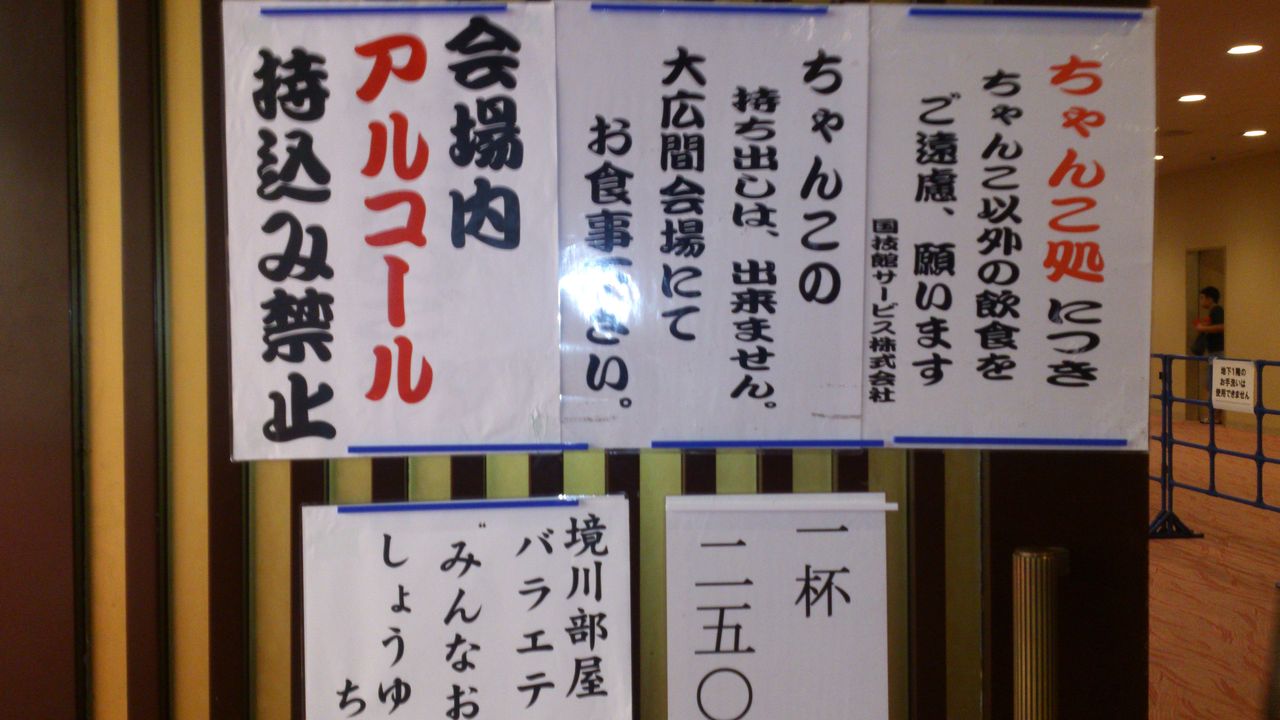 ちゃんこ処につき
ちゃんこ以外の飲食を
ご遠慮、願います
国技館サービス株式会社
ちゃんこの
持ち出しは、出来ません。
大広間会場にて
お食事下さい。
会場内
アルコール
持込み禁止
一杯
二五〇
境川部屋
バラエテ
〝みんなお
しょうゆ
ち
地下1階の
お手洗いは
使用できません